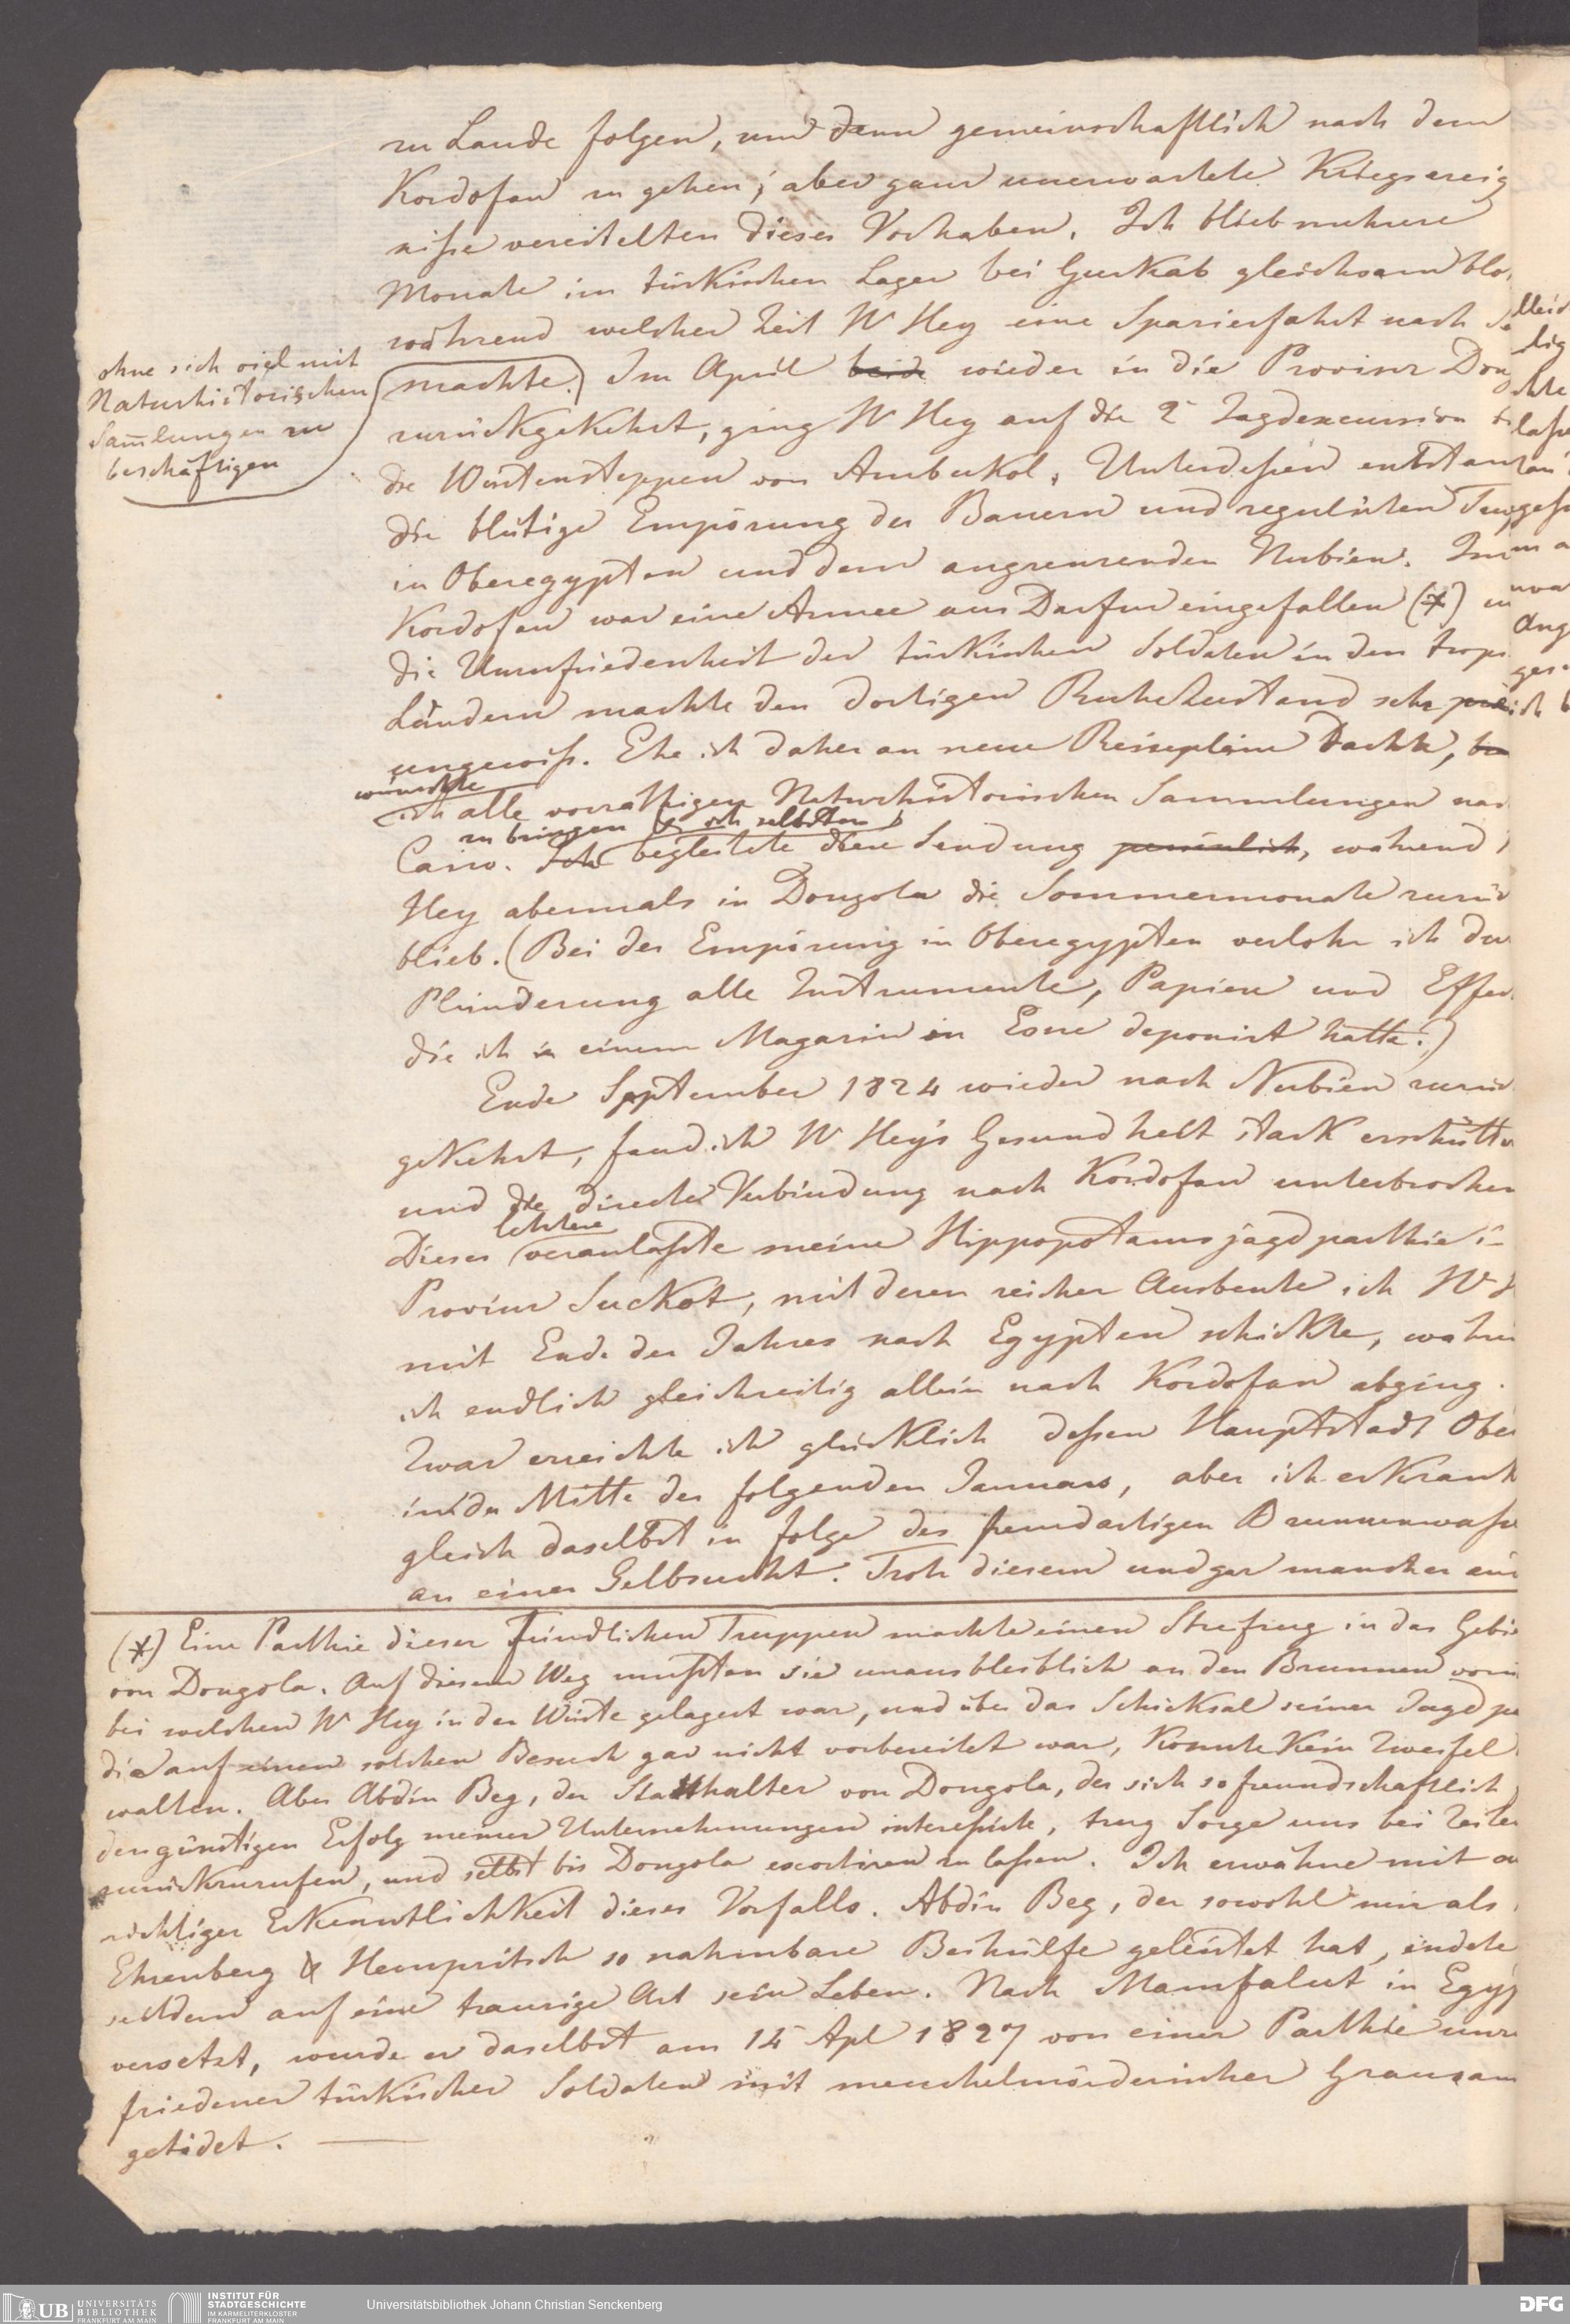 zu Lande folgen, um dann gemeinschaftlich nach dem
Kordofan zu gehen; aber ganz unerwartete Kriegsereig
niße vereitelten dieses Vorhaben. Ich blieb mehrere
Monate im türkischen Lager bei Gurkab gleichsam blo
während welcher Zeit W Hey eine Spazierfahrt nach
ohne sich viel mit
Naturhistorischen
Samlungen zu
beschäftigen
machte. Im April beide wieder in die Provinz Don
zurückgekehrt, ging W Hey auf die 2 Jagdexcursion
die Wüstensteppen von Ambukol. Unterdeßen entstan
die blutige Empörung der Bauern und regulüten Tru
in Oberegypten und dem angrenzenden Nubien. Im
Kordofan war eine Armee aus Darfur eingefallen (*) u
die Unzufriedenheit der türkischen Soldaten in den trop
Ländern machte den dortigen Ruhezustand sehr
ungewiß. Ehe ich daher an neue Reiseplane dachte,
wünschte
ich alle vorräthigen Naturhistorischen Sammlungen nac
zu bringen & ich selbsten
Cairo. Ich begleitete diese Sendung persönlich, während
Hey abermals in Dongola die Sommermonate zurü
blieb. (Bei der Empörung in Oberegypten verlohr ich du
Plünderung alle Instrumente, Papiere und Effec
die ich in einem Magazin in Esne deponirt hatte.)
Ende September 1824 wieder nach Nubien zurü
gekehrt, fand ich W Hey's Gesundheit stark erschütte
und die directe Verbindung nach Kordofan unterbrochen
letztere
Dieses veranlaßte meine Hippopotamusjagdparthie i
Provinz Suckot, mit deren reicher Ausbeute ich W H
mit Ende des Jahres nach Egypten schickte, währe
ich endlich gleichzeitig allein nach Kordofan abging.
Zwar erreichte ich glücklich deßen Hauptstadt Obe
in der Mitte des folgenden Januars, aber ich erkrank
gleich daselbst in folge des fremdartigen Brunnenwaße
an einer Gelbsucht. Trotz diesem und gar mancher
(*) Eine Parthie dieser feindlichen Truppen machte einen Streifzug in das Gebie
von Dongola. Auf diesem Weg mußten sie unausbleiblich an den Brunnen
bei welchen W Hey in der Wüste gelagert war, und über das Schicksal seiner Jagdpa
die auf einen solchen Besuch gar nicht vorbereitet war, konnte kein Zweifel
walten. Aber Abdin Beg, der Statthalter von Dongola, der sich so freundschaftlich
den günstigen Erfolg meiner Unternehmungen intereßirte, trug Sorge uns bei Zeiten
zurückzurufen, und selbst bis Dongola escortiren zu laßen. Ich erwähne mit au
richtiger Erkenntlichkeit dieses Vorfalls. Abdin Beg, der sowohl mir als
Ehrenberg & Hempritsch so nahmbare Beihülfe geleistet hat, endete
seitdem auf eine traurige Art sein Leben. Nach Mamfalut in Egyp
versetzt, wurde er daselbst am 15 Apl 1827 von einer Parthie unzu
friedener türkischer Soldaten mit meuchelmörderischer Grausam
getödet.
lleic
lig
chte
laße
zau
geß
m a
Ang
ich
UB UNIVERSITÄTS
BIBLIOTHEK
FRANKFURT AM MAIN
INSTITUT FÜR
STADTGESCHICHTE
IM KARMELITERKLOSTER
FRANKFURT AM MAIN
Universitätsbibliothek Johann Christian Senckenberg
DFG